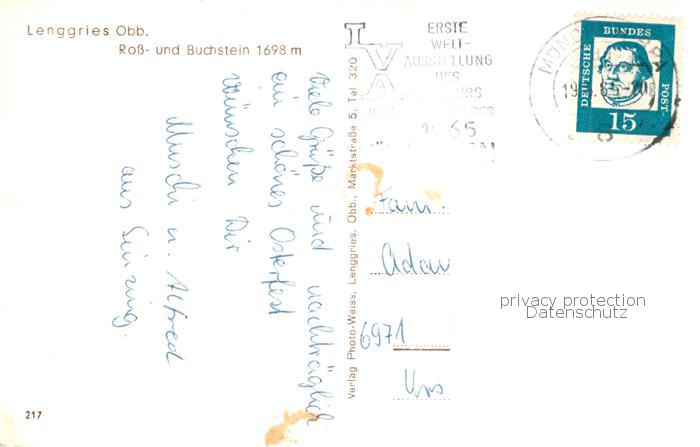 Lenggries Obb.
Roß- und Buchstein 1698 m
Viele Grüße und nachträglich
ein schönes Osterfest
wünschen Dir
Muschi u. Alfred
aus
217
Verlag Photo-Weiss, Lenggries, Obb., Marktstraße 5, Tel. 320
IVA
ERSTE
WELT-
AUSSTELLUNG
DES
65
DEUTSCHE BUNDESPOST
15
Fam.
Adam
6971
privacy protection
Datenschutz